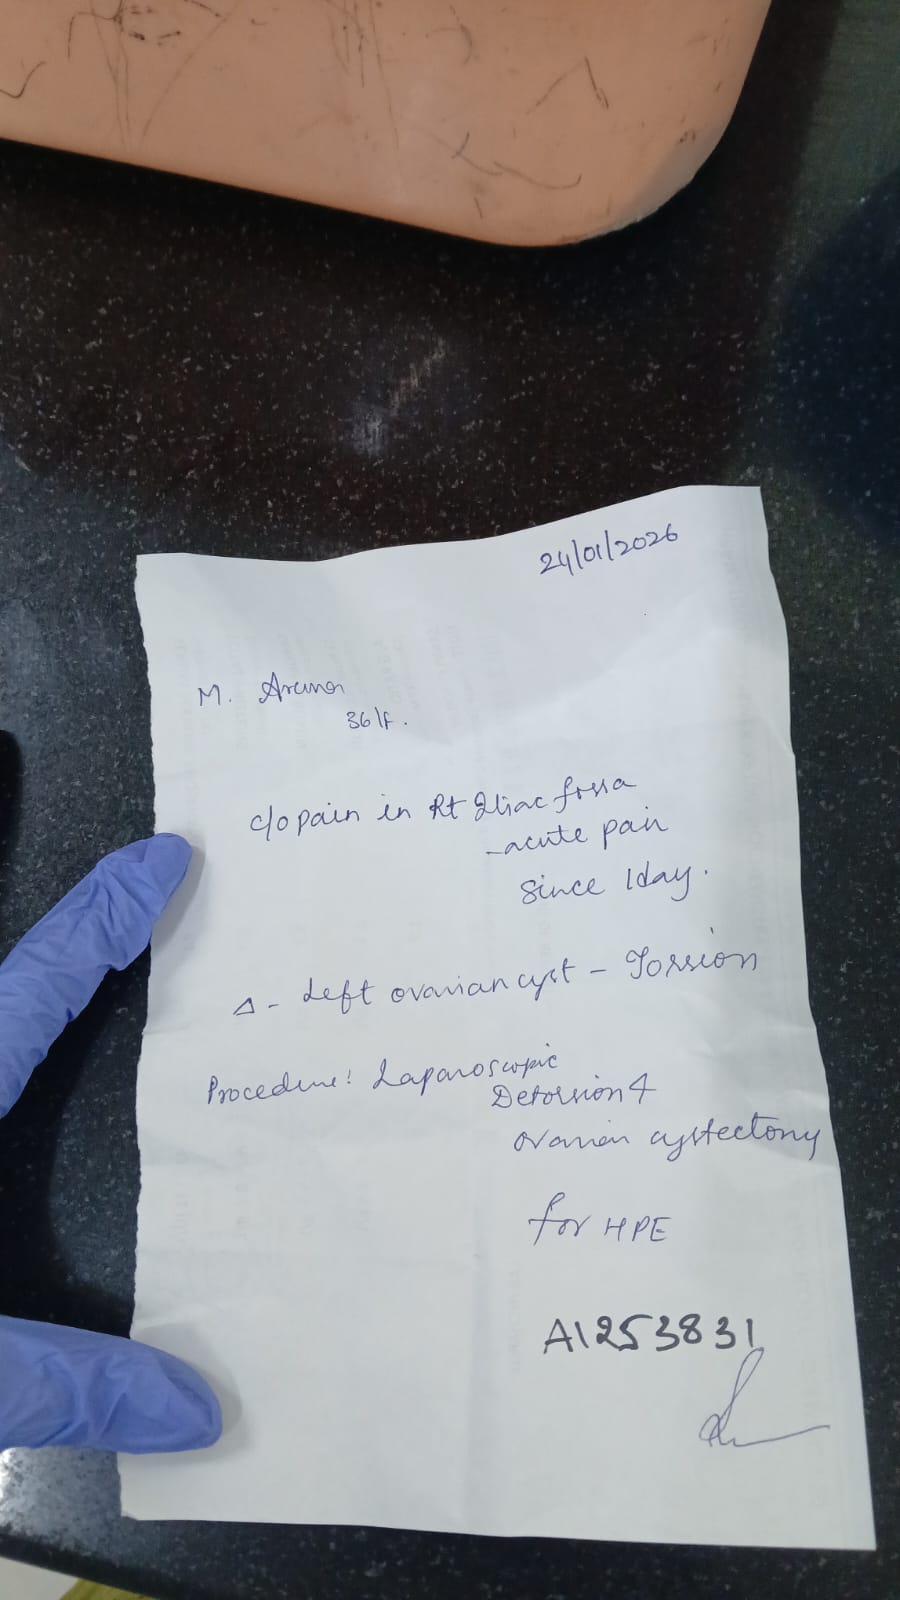 24/01/2026
M. Aruna
36/F.
c/o pain in Rt Iliac fossa
- acute pain
since 1day.
Δ - Left ovarian cyst - Torsion
Procedure: Laparoscopic
Detorsion &
ovarian cystectomy
for HPE
A1253831